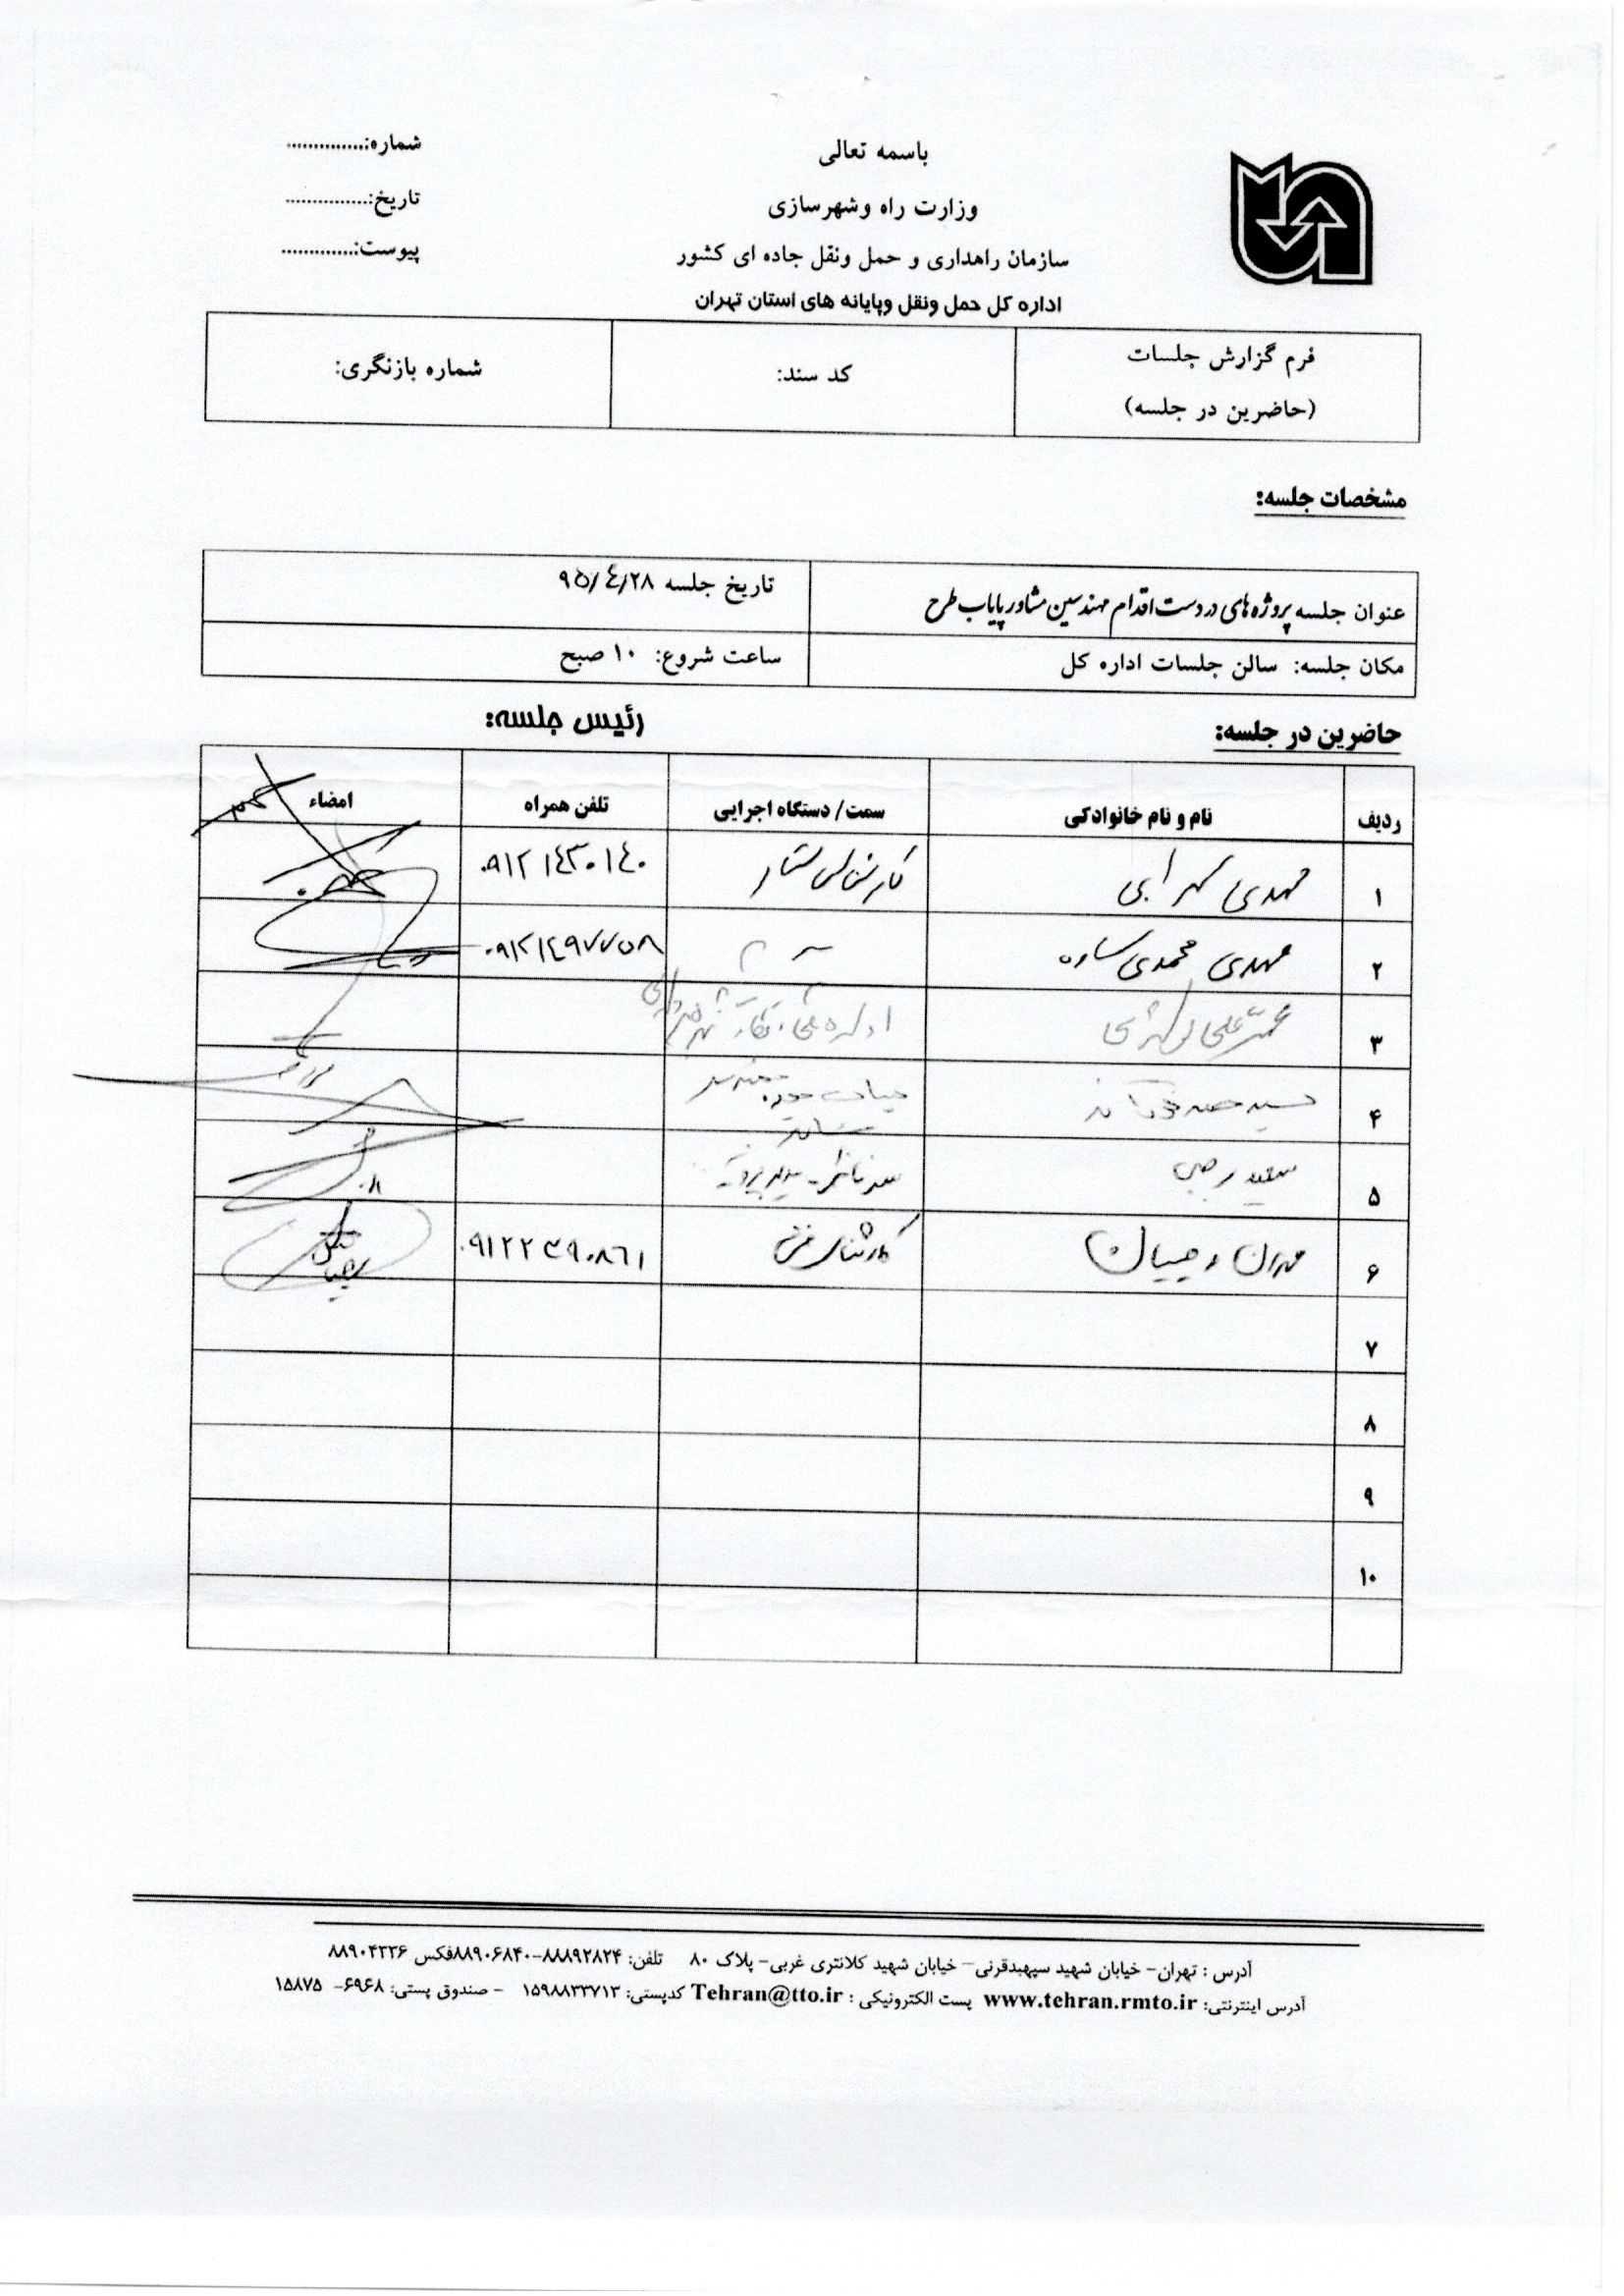 باسمه تعالی
وزارت راه وشهرسازی
سازمان راهداری و حمل ونقل جاده ای کشور
اداره کل حمل ونقل وپایانه های استان تهران
شماره:..............
تاریخ:...............
پیوست:.............
فرم گزارش جلسات
(حاضرین در جلسه)
کد سند:
شماره بازنگری:
مشخصات جلسه:
عنوان جلسه پروژه های در دست اقدام مهندسین مشاور پایاب طرح
تاریخ جلسه ۹۵/۴/۲۸
مکان جلسه: سالن جلسات اداره کل
ساعت شروع: ۱۰ صبح
حاضرین در جلسه:
رئیس جلسه:
ردیف نام و نام خانوادگی سمت/ دستگاه اجرایی تلفن همراه امضاء
۱ مهدی سهرابی کارشناس ۰۹۱۲۱۴۳۰۱۴۰
۲ مهدی محمدی ۰۹۱۲۱۴۹۷۷۵۸
۳
۴ سید
۵ سعید رجبی
۶ مهران رجبیان کارشناس فنی ۰۹۱۲۲۳۹۰۸۶۱
۷
۸
۹
۱۰
آدرس : تهران- خیابان شهید سپهبدقرنی- خیابان شهید کلانتری غربی- پلاک ۸۰ تلفن: ۸۸۸۹۲۸۲۴-۸۸۹۰۶۸۴۰فکس ۸۸۹۰۴۳۳۶
آدرس اینترنتی: www.tehran.rmto.ir پست الکترونیکی : Tehran@tto.ir کدپستی: ۱۵۹۸۸۳۳۷۱۳ - صندوق پستی: ۶۹۶۸- ۱۵۸۷۵